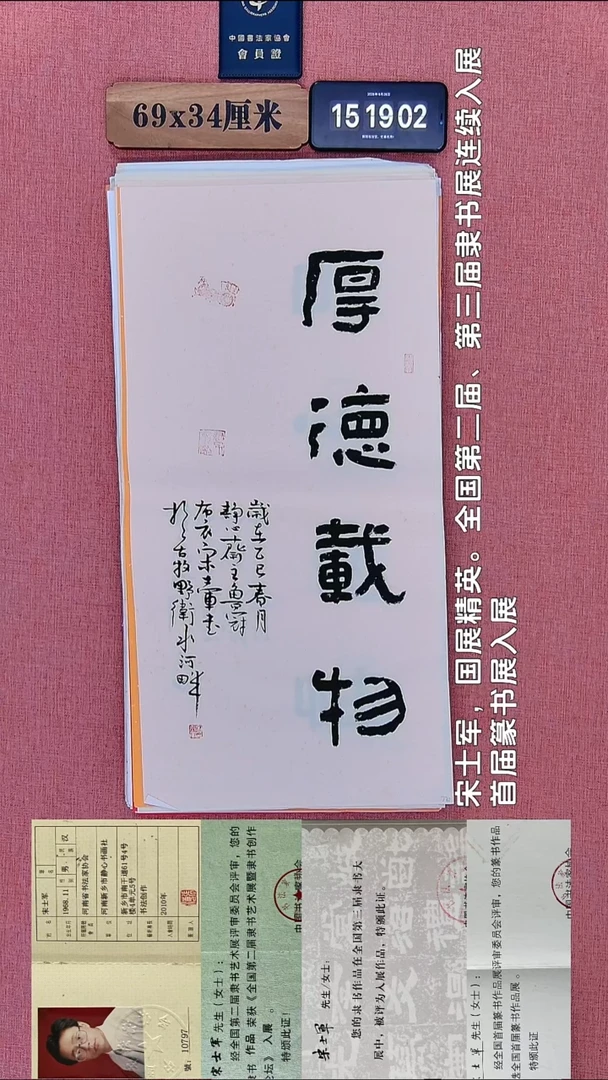 中國書法家協會
會員證
69x34厘米
2025年4月26日
15 19 02
厚德載物
歲在乙巳春月
靜心齋主魚冠
布衣宋士軍書
於古牧野衛水河畔
宋士军，国展精英。全国第二届、第三届隶书展连续入展
首届篆书展入展
宋士军
1968.11 男 汉
河南省书法家协会
河南新乡市静心书画社
新乡市南干道61号4号
楼4单元5号
书法创作
2010年
號：10797
宋士军 先生（女士）：
经全国第二届隶书艺术展评审委员会评审，您的
隶书 作品 荣获《全国第二届隶书艺术展暨隶书创作
论坛》 入展 。
特颁此证！
宋士军 先生/女士：
您的隶书作品在全国第三届隶书大
展中，被评为入展作品，特颁此证。
士军 先生（女士）：
经全国首届篆书作品展评审委员会评审，您的篆书作品
选全国首届篆书作品展 。
特颁此证